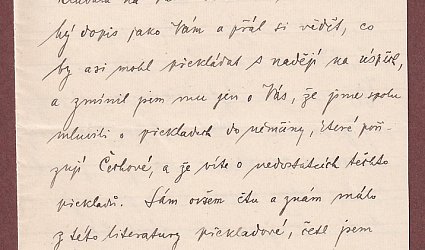 ný dopis jako Vám a přál si vědět, co
by asi mohl překládat s nadějí na úspěch,
a zmínil jsem mu jen o Vás, že jsme spolu
mluvili o překladech do němčiny, které poři-
zují Čechové, a že víte o nedostatcích těchto
překladů. Sám ovšem čtu a znám málo
z této literatury překladové, četl jsem